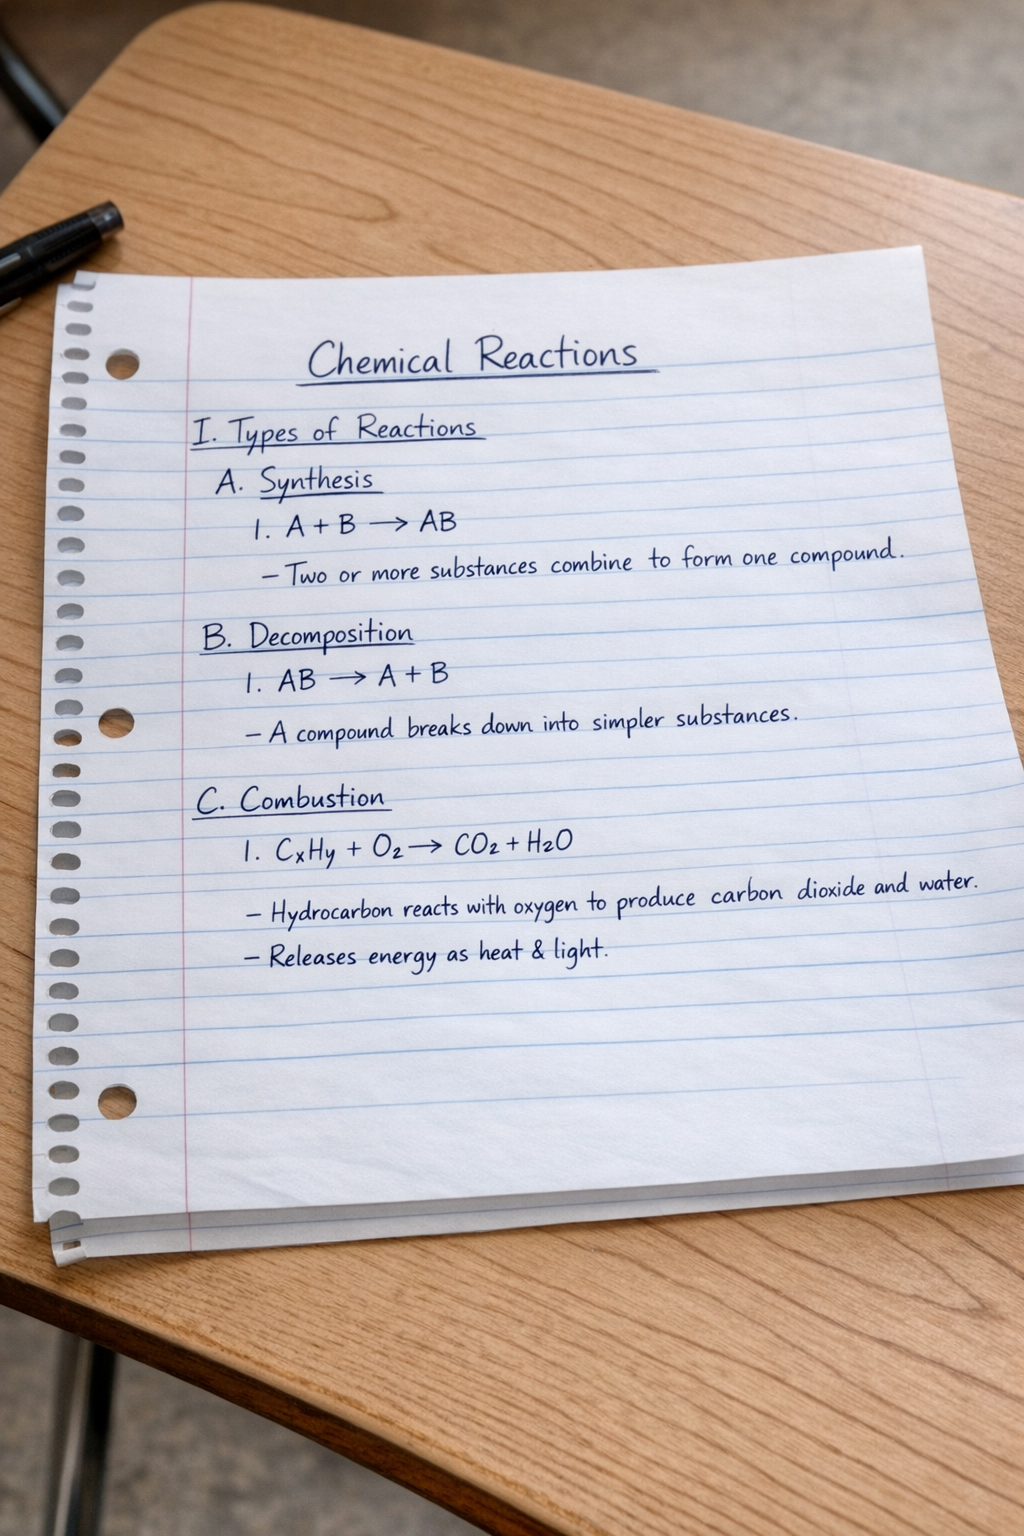 Chemical Reactions
I. Types of Reactions
A. Synthesis
1. A + B → AB
– Two or more substances combine to form one compound.
B. Decomposition
1. AB → A + B
– A compound breaks down into simpler substances.
C. Combustion
1. CₓHy + O₂ → CO₂ + H₂O
– Hydrocarbon reacts with oxygen to produce carbon dioxide and water.
– Releases energy as heat & light.